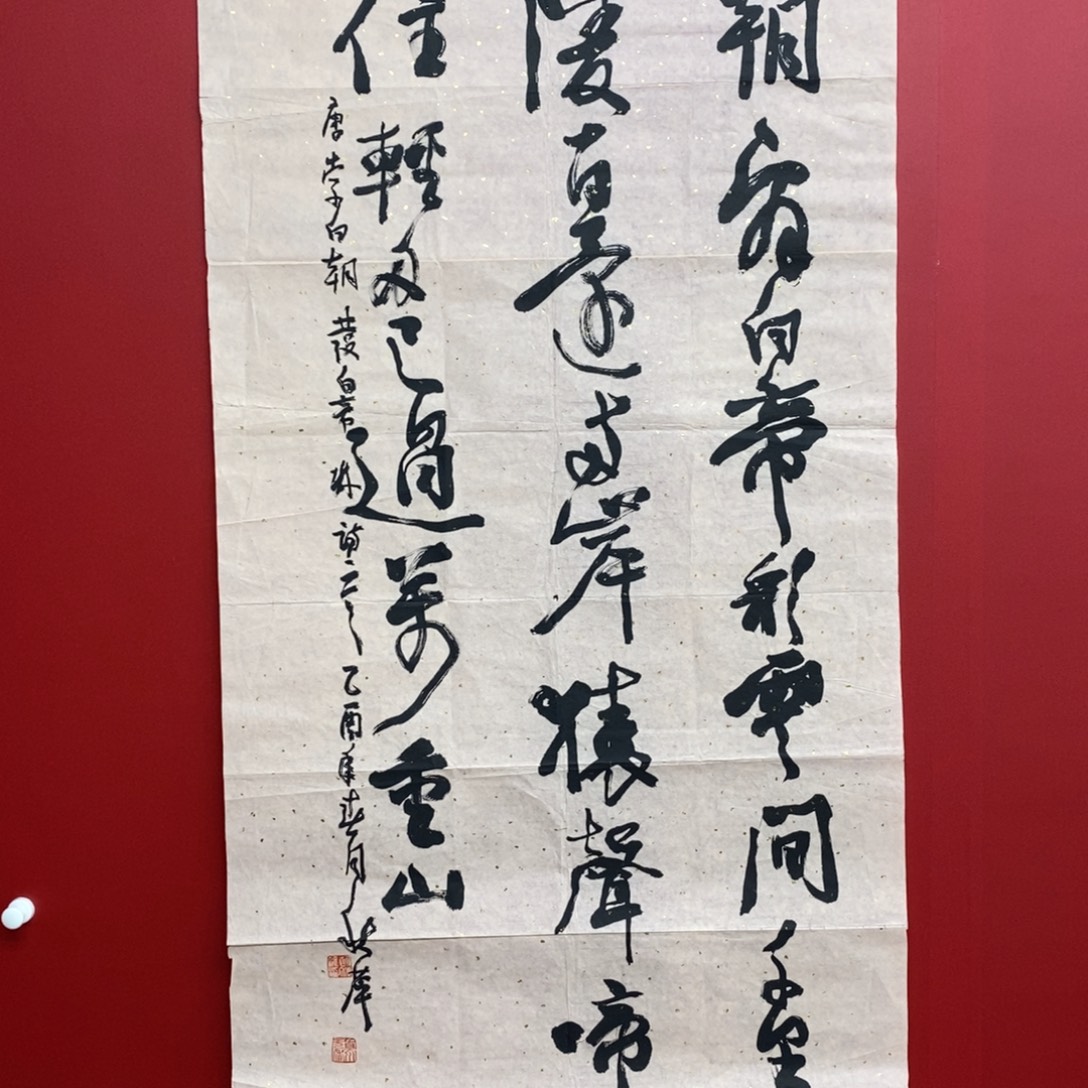 朝辭白帝彩雲間千里
陵一日還兩岸猿聲啼
住輕舟已過萬重山
唐李白朝發白帝城詩 乙酉年春月